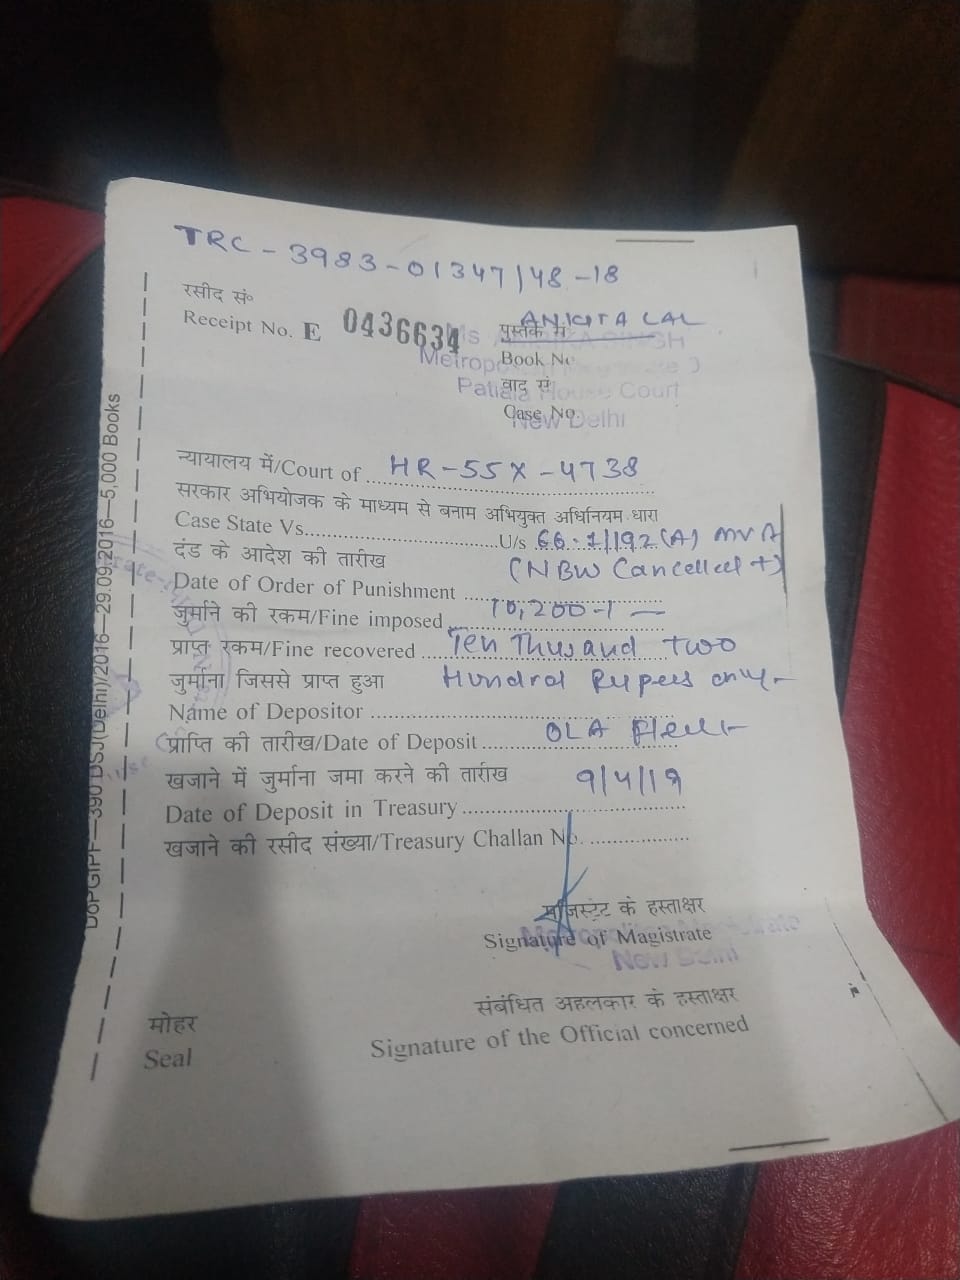 TRC - 3983 - 01347/48 - 18
रसीद सं०
Receipt No. E 0436634
ANKITA LAL
पुस्तक सं
Book No
Metrop
Patiala House Court
वाद सं
Case No.
New Delhi
न्यायालय में/Court of HR-55X-4738
सरकार अभियोजक के माध्यम से बनाम अभियुक्त अधिनियम धारा
Case State Vs. U/s 66.1/192(A) MVA
दंड के आदेश की तारीख (NBW Cancelled
Date of Order of Punishment
जुर्माने की रकम/Fine imposed 10,200-/-
प्राप्त रकम/Fine recovered Ten Thusand two
जुर्माना जिससे प्राप्त हुआ Hundred Rupees only-
Name of Depositor
प्राप्ति की तारीख/Date of Deposit OLA Fleet
खजाने में जुर्माना जमा करने की तारीख 9/4/19
Date of Deposit in Treasury
खजाने की रसीद संख्या/Treasury Challan No.
मजिस्ट्रेट के हस्ताक्षर
Signature of Magistrate
New Delhi
संबंधित अहलकार के हस्ताक्षर
मोहर
Signature of the Official concerned
Seal
DoPGIPF—390 DSJ(Delhi)/2016—29.09.2016—5,000 Books